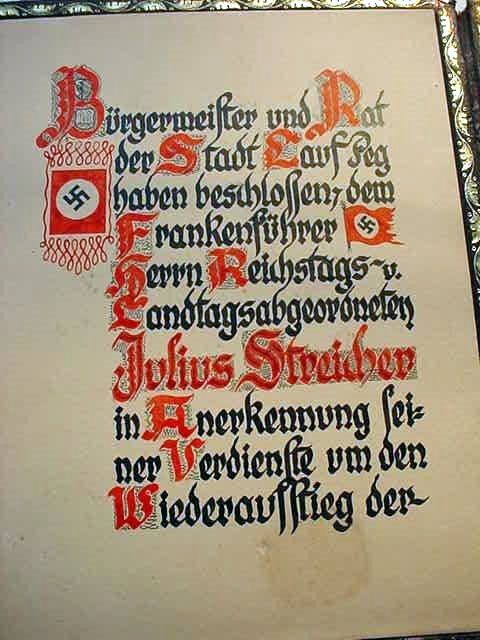 Bürgermeister und Rat
der Stadt Lauf Peg
haben beschlossen, dem
Frankenführer
Herrn Reichstags- u.
Landtagsabgeordneten
Julius Streicher
in Anerkennung sei=
ner Verdienste um den
Wiederaufstieg der-